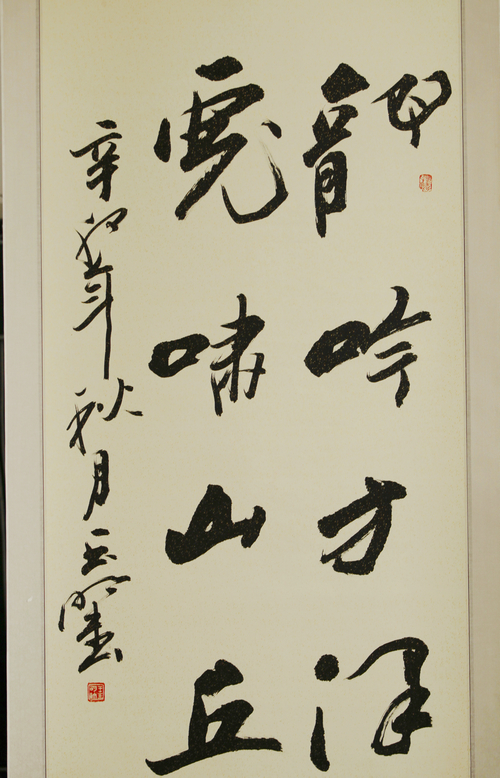 龍吟方澤
虎嘯山丘
辛卯年秋月